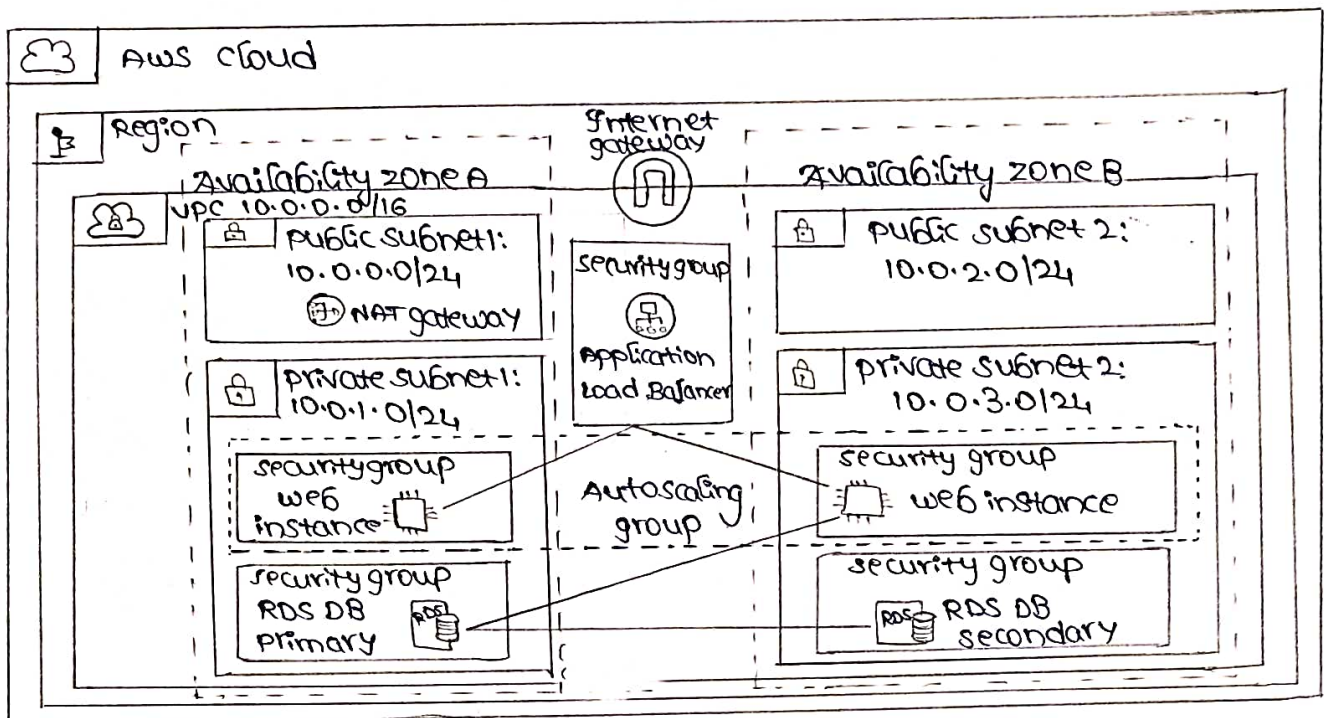 AWS Cloud
Region
Internet
gateway
Availability zone A
Availability zone B
VPC 10.0.0.0/16
public subnet1:
10.0.0.0/24
NAT gateway
security group
Application
Load Balancer
public subnet 2:
10.0.2.0/24
private subnet1:
10.0.1.0/24
private subnet 2:
10.0.3.0/24
security group
web
instance
Autoscaling
group
security group
web instance
security group
RDS DB
primary
RDS
security group
RDS
RDS DB
secondary